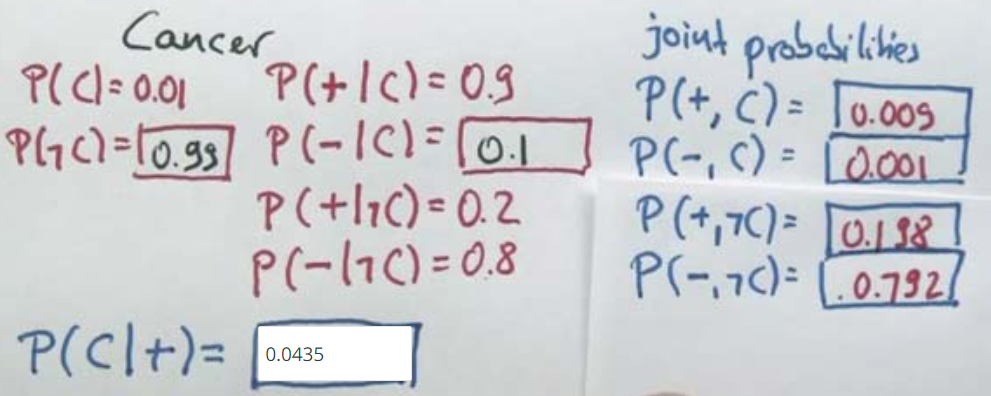 Cancer
P(C)= 0.01
P(¬C)= 0.99
P(+|C)= 0.9
P(-|C)= 0.1
P(+|¬C)= 0.2
P(-|¬C)= 0.8
joint probabilities
P(+, C) = 0.009
P(-, C) = 0.001
P(+,¬C)= 0.198
P(-,¬C)= 0.792
P(C|+)= 0.0435